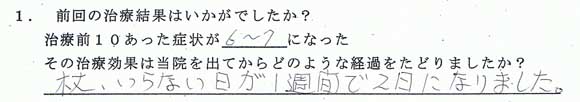 1． 前回の治療結果はいかがでしたか？
治療前１０あった症状が 6～7 になった
その治療効果は当院を出てからどのような経過をたどりましたか？
杖、いらない日が1週間で2日になりました。